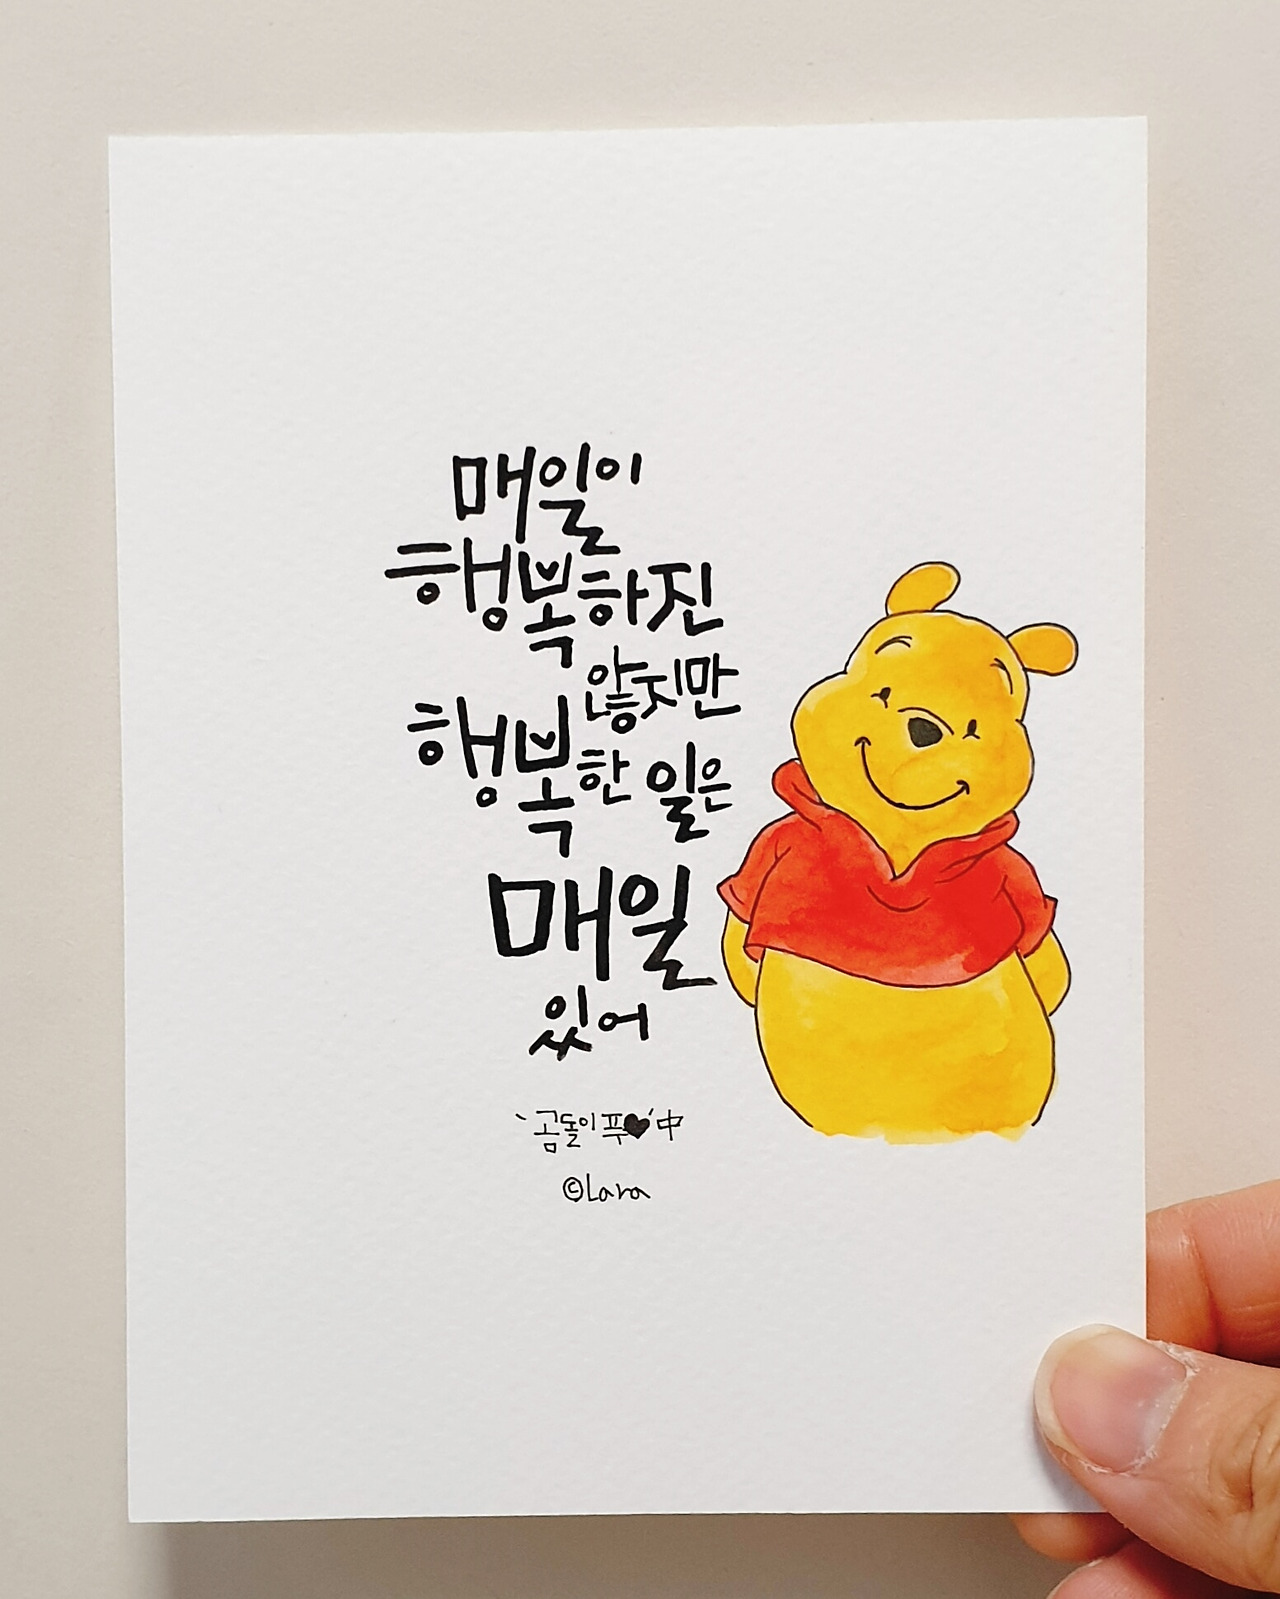 매일이
행복하진
않지만
행복한 일은
매일
있어
`곰돌이 푸♥' 中
©Lara